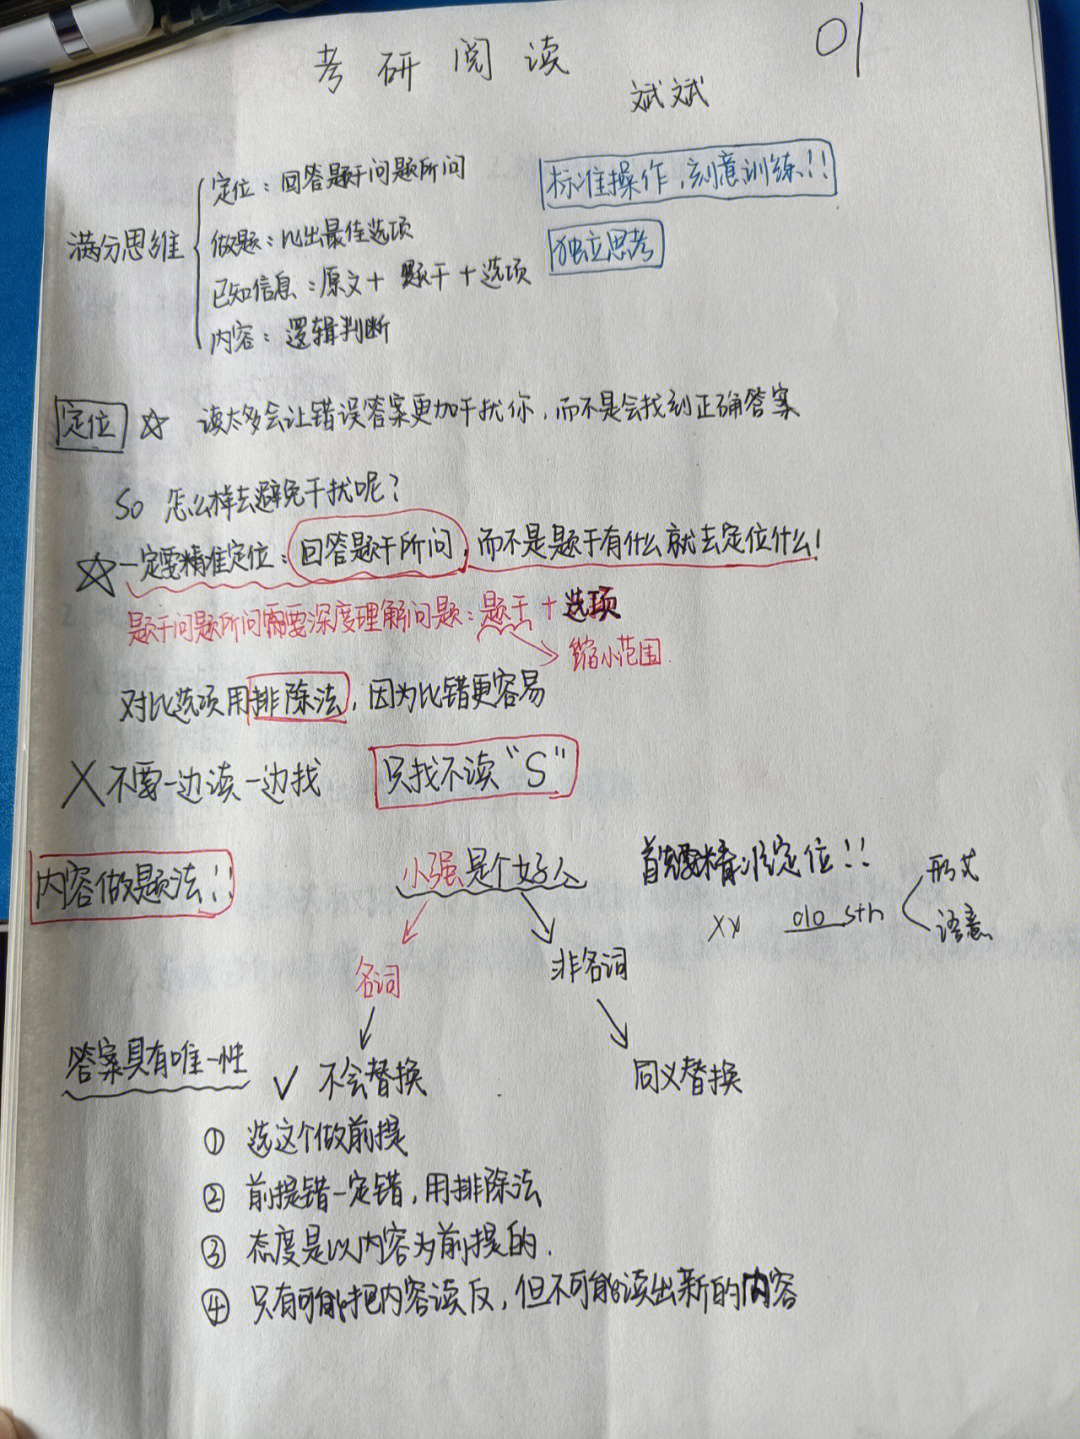 考研阅读
01
斌斌
满分思维
定位：回答题干问题所问
做题：比出最佳选项
已知信息：原文+ 题干+选项
内容：逻辑判断
标准操作，刻意训练!!
独立思考
定位 ☆ 读太多会让错误答案更加干扰你，而不是会找到正确答案
So 怎么样去避免干扰呢?
☆一定要精准定位：回答题干所问，而不是题干有什么就去定位什么!
题干问题所问需要深度理解问题：题干+选项
缩小范围.
对比选项用排除法，因为比错更容易
X不要一边读一边找 只找不读“S”
内容做题法!!
小强是个好人
首先要精准定位!!
xy do sth
形式
语意
名词
非名词
答案具有唯一性
✓ 不会替换
同义替换
① 选这个做前提
② 前提错一定错，用排除法
③ 态度是以内容为前提的.
④ 只有可能把内容读反，但不可能读出新的内容